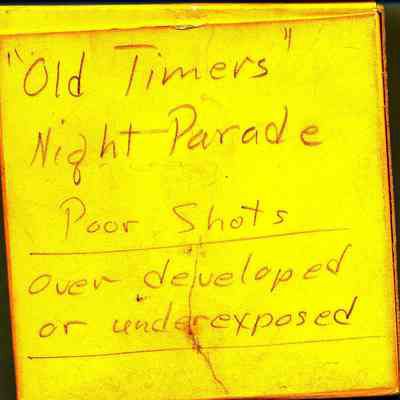 "Old Timers"
Night Parade
Poor Shots
Over developed
or underexposed